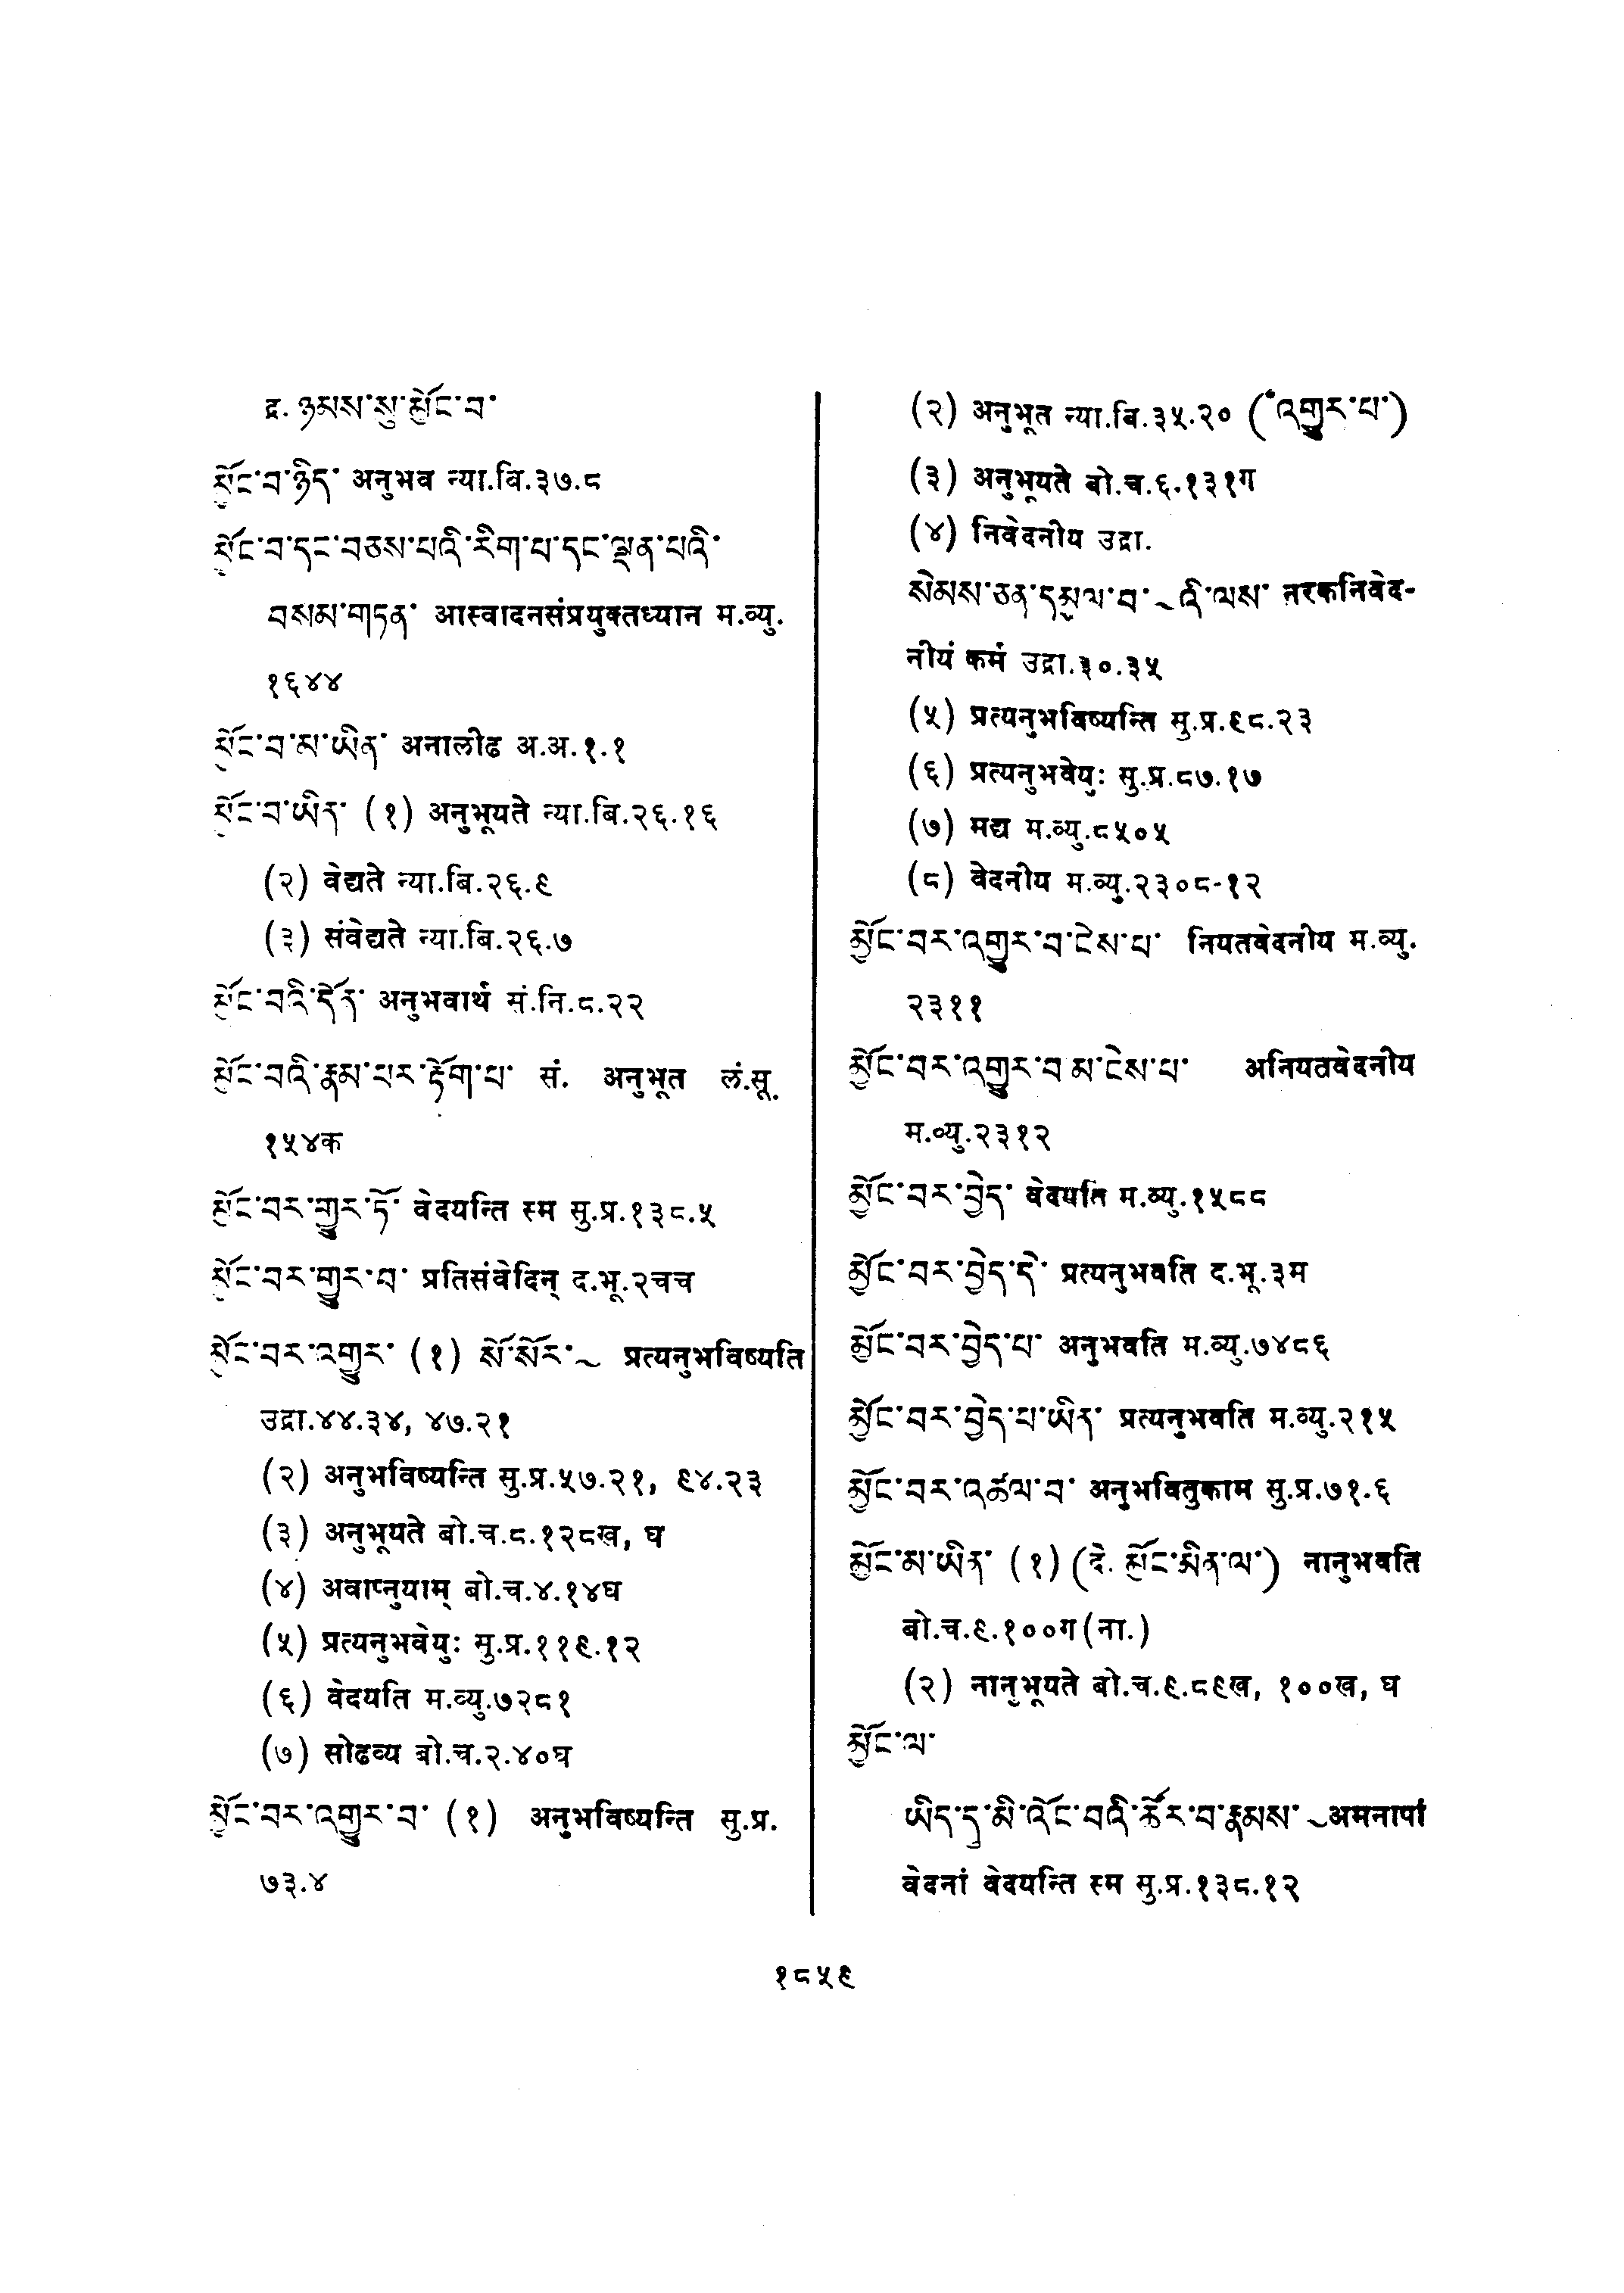 द्र. ཉམས་སུ་མྱོང་བ་
མྱོང་བ་ཉིད་ अनुभव न्या.बि.३७.८
མྱོང་བ་དང་བཅས་པའི་རིག་པ་དང་ལྡན་པའི་
བསམ་གཏན་ आस्वादनसंप्रयुक्तध्यान म.व्यु.
१६४४
མྱོང་བ་མ་ཡིན་ अनालीढ अ.अ.१.१
མྱོང་བ་ཡིན་ (१) अनुभूयते न्या.बि.२६.१६
(२) वेद्यते न्या.बि.२६.९
(३) संवेद्यते न्या.बि.२६.७
མྱོང་བའི་དོན་ अनुभवार्थ सं.नि.८.२२
མྱོང་བའི་རྣམ་པར་རྟོག་པ་ सं. अनुभूत लं.सू.
१५४क
མྱོང་བར་གྱུར་ཏོ་ वेदयन्ति स्म सु.प्र.१३८.५
མྱོང་བར་གྱུར་པ་ प्रतिसंवेदिन् द.भू.२चच
མྱོང་བར་འགྱུར་ (१) སོ་སོར་~ प्रत्यनुभविष्यति
उद्रा.४४.३४, ४७.२१
(२) अनुभविष्यन्ति सु.प्र.५७.२१, ९४.२३
(३) अनुभूयते बो.च.८.१२८ख, घ
(४) अवाप्नुयाम् बो.च.४.१४घ
(५) प्रत्यनुभवेयुः सु.प्र.११९.१२
(६) वेदयति म.व्यु.७२८१
(७) सोढव्य बो.च.२.४०घ
མྱོང་བར་འགྱུར་བ་ (१) अनुभविष्यन्ति सु.प्र.
७३.४
(२) अनुभूत न्या.बि.३५.२० (°འགྱུར་པ་)
(३) अनुभूयते बो.च.६.१३१ग
(४) निवेदनीय उद्रा.
སེམས་ཅན་དམྱལ་བ་~འི་ལས་ नरकनिवेद-
नीयं कर्म उद्रा.३०.३५
(५) प्रत्यनुभविष्यन्ति सु.प्र.९८.२३
(६) प्रत्यनुभवेयुः सु.प्र.८७.१७
(७) मद्य म.व्यु.८५०५
(८) वेदनीय म.व्यु.२३०८-१२
མྱོང་བར་འགྱུར་བ་ངེས་པ་ नियतवेदनीय म.व्यु.
२३११
མྱོང་བར་འགྱུར་བ་མ་ངེས་པ་ अनियतवेदनीय
म.व्यु.२३१२
མྱོང་བར་བྱེད་ वेदयति म.व्यु.१५८८
མྱོང་བར་བྱེད་དེ་ प्रत्यनुभवति द.भू.३म
མྱོང་བར་བྱེད་པ་ अनुभवति म.व्यु.७४८६
མྱོང་བར་བྱེད་པ་ཡིན་ प्रत्यनुभवति म.व्यु.२१५
མྱོང་བར་འཚལ་བ་ अनुभवितुकाम सु.प्र.७१.६
མྱོང་མ་ཡིན་ (१) (दे. མྱོང་མིན་ལ་) नानुभवति
बो.च.९.१००ग(ना.)
(२) नानुभूयते बो.च.९.८९ख, १००ख, घ
མྱོང་ལ་
ཡིད་དུ་མི་འོང་བའི་ཚོར་བ་རྣམས་~अमनापां
वेदनां वेदयन्ति स्म सु.प्र.१३८.१२
१८५९